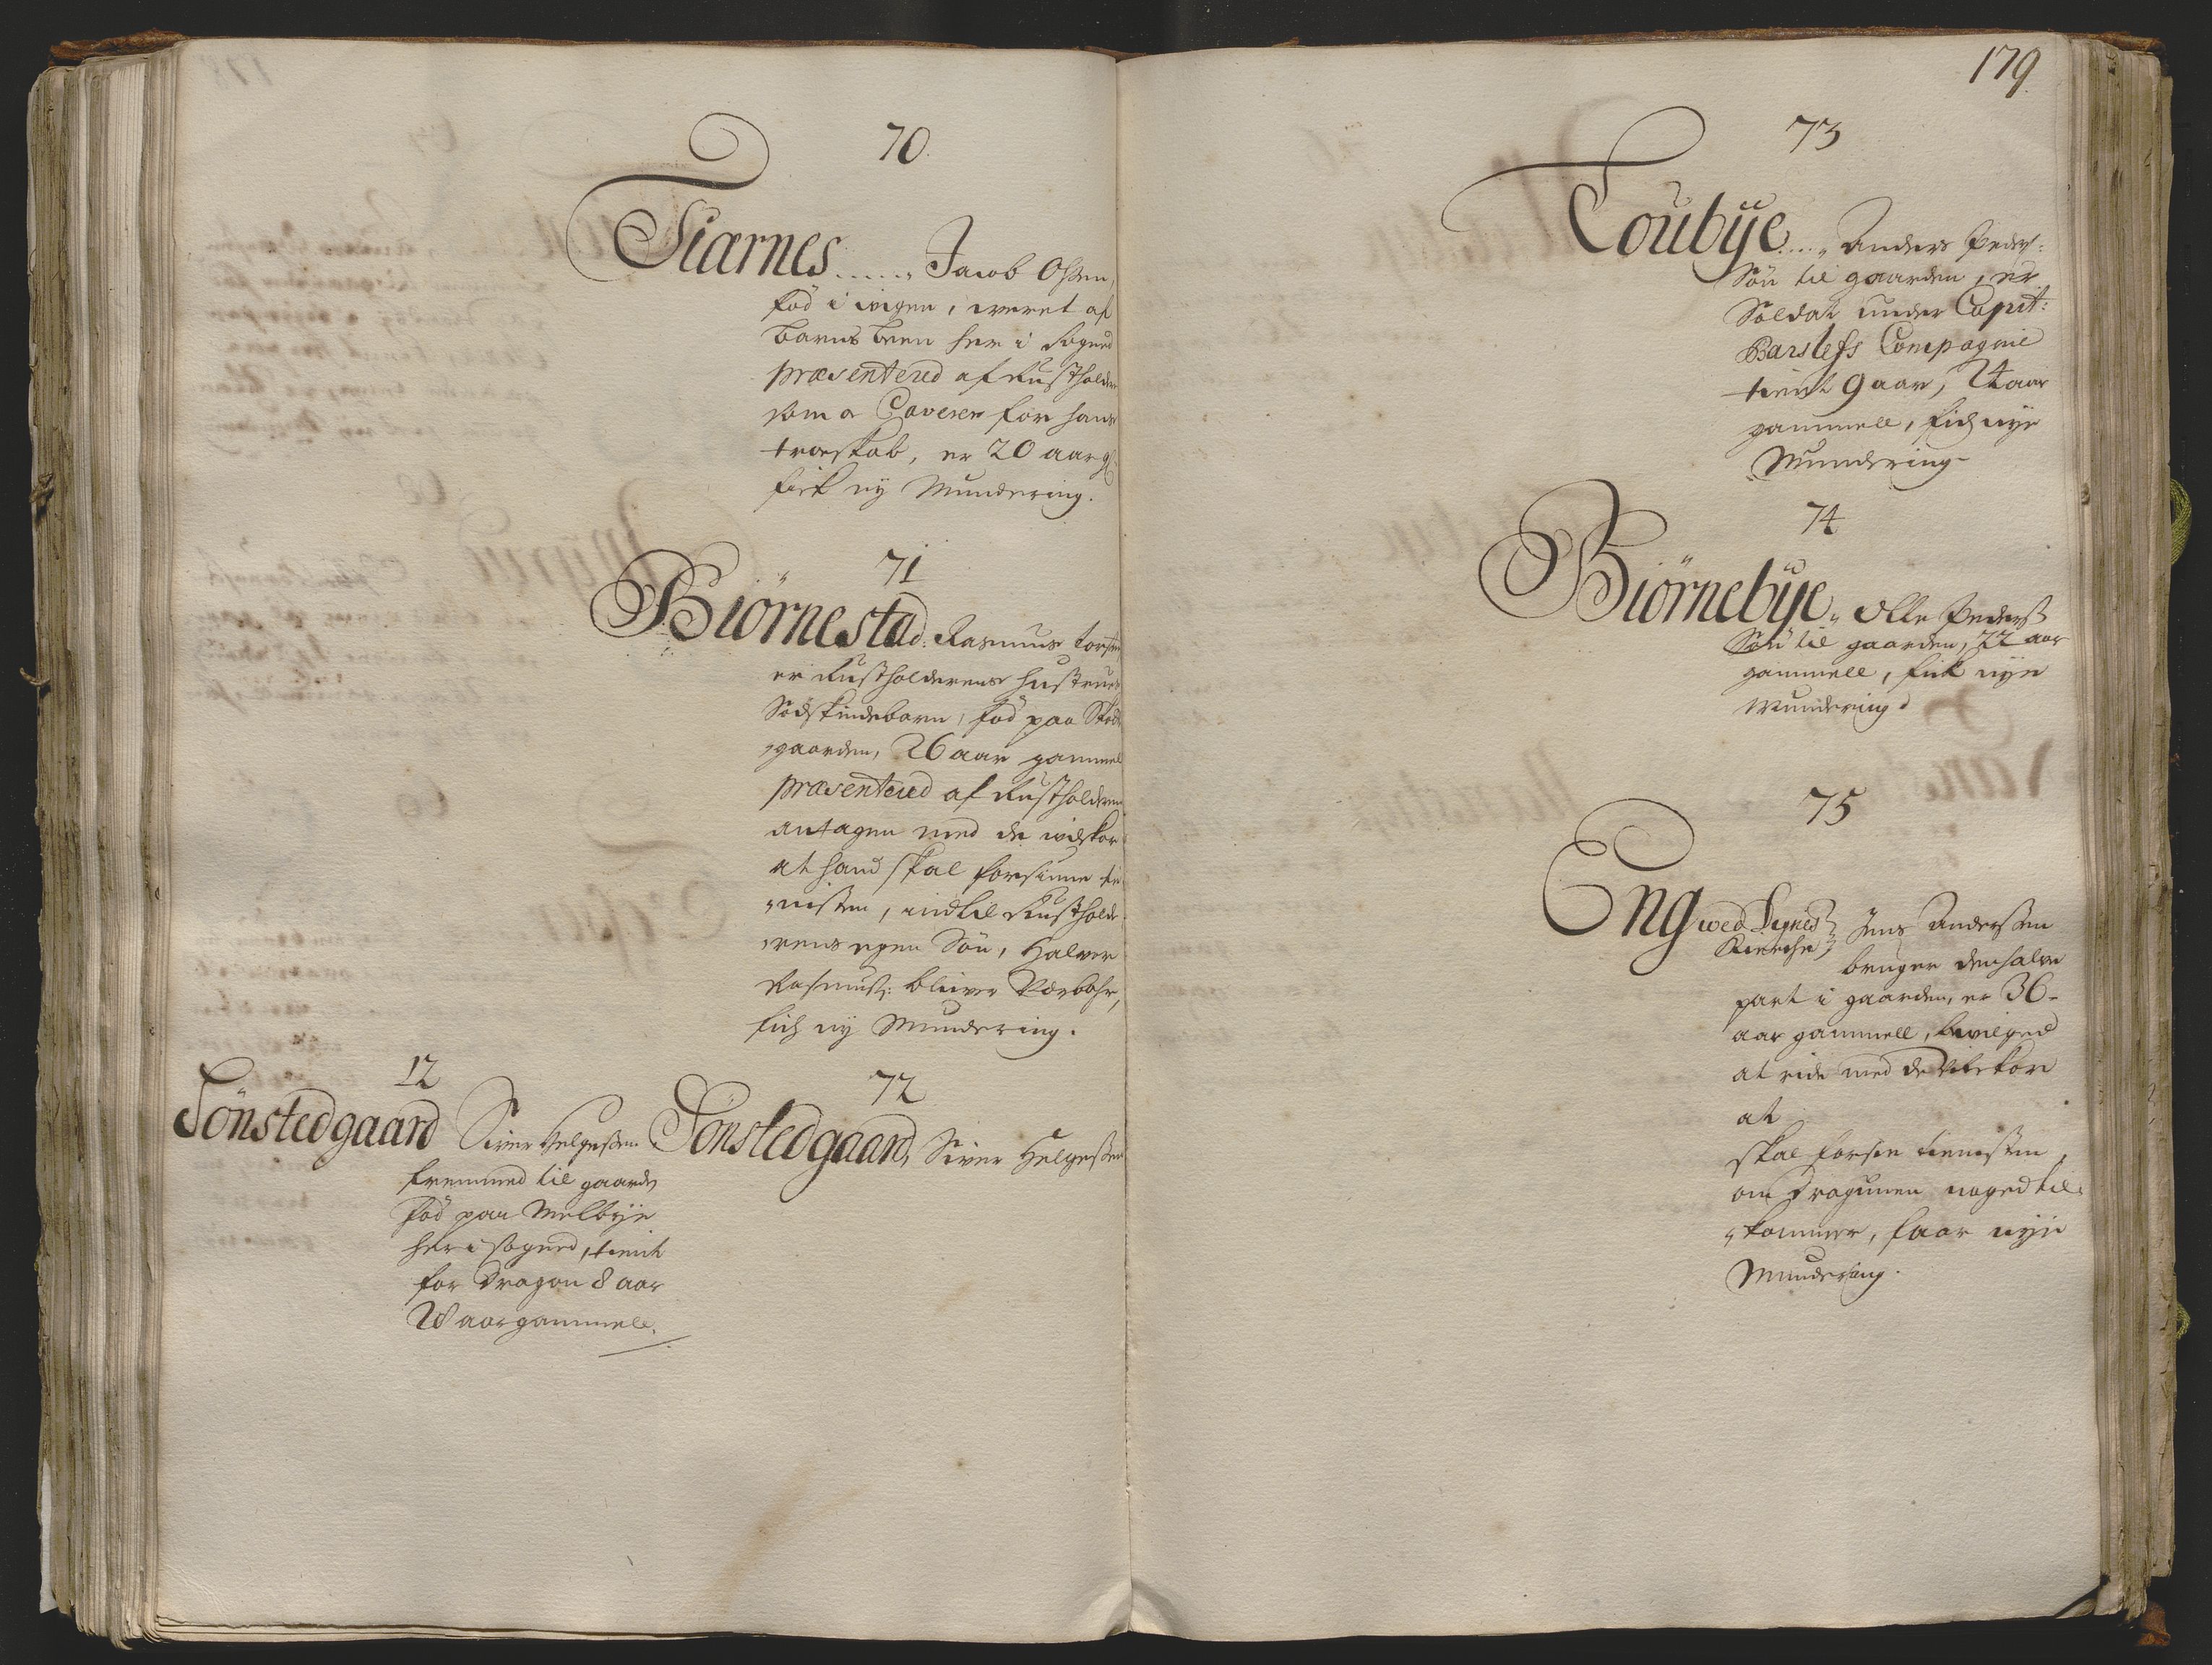 70.
Tiærnes...... Jacob Olßen,
fød i wigen, weret af
barns been her i Sogned
præsenterd af Rustholdern
som a Caverer for hans
troeskab, er 20 aar gl:
fick ny Mundering.
71
Biørnestad: Rasmus Torsten,
er Rustholderens Hustrues
Södskindebarn, fød paa
gaarden, 26 aar gammel
præsenterd af Rustholderen
antagen med de wilkor
at hand skal forsiune tie
nisten, indtil Rustholde
rens egen Søn, Halvor
Rasmuß: bliver Værbahr,
fich ny Mundering.
12
Tönstedgaard Siver Helgeßen
fremmed til gaarden
fød paa Melbye
her i Sogned, tient
for Dragon 8 aar
28 aar gammell.
72
Tönstedgaard, Siver Helgeßen
179
73
Toubÿe.... Anders Peders:
Søn til gaarden, er
Soldat under Capit:
Barslefs Compagnie
tient 9 aar, 24 aar
gammell, fich nye
Mundering
74
Biörnebÿe. Olle Pederß
Søn til gaarden, 22 aar
gammell, fick nye
Mundering
75
Eng wed Kierche Jens Anderßen
bruger den halve
part i gaarden, er 36
aar gammell, bevilged
at ride med de Vilckor
at
skal forsee tienisten,
om Dragunen noged til
kommer, faar nye
Mundering.